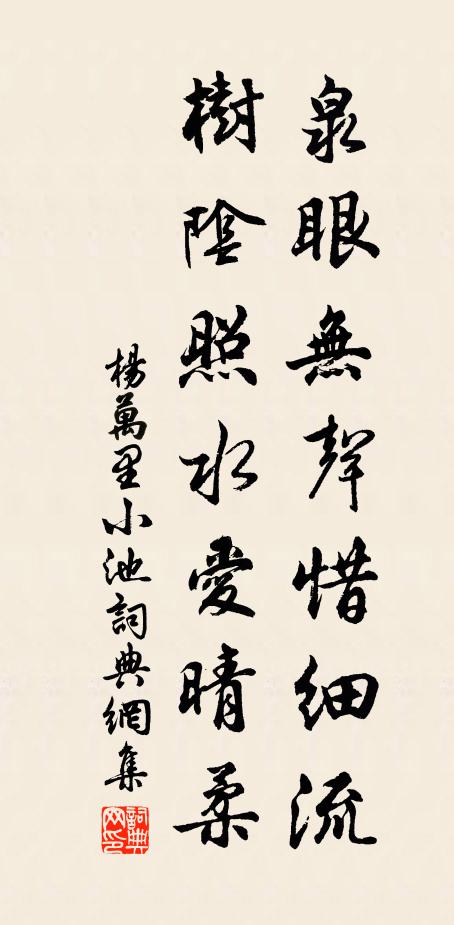 泉眼無聲惜細流
樹陰照水愛晴柔
楊萬里小池詞典網集
詞典网印